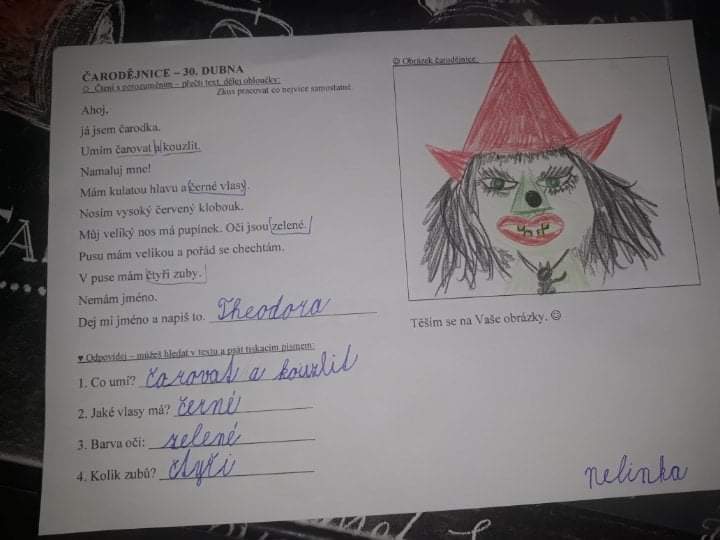 ČARODĚJNICE – 30. DUBNA
☺ Čtení s porozuměním – přečti text, dělej obloučky:
Zkus pracovat co nejvíce samostatně.
Ahoj,
já jsem čarodka.
Umím čarovat a kouzlit.
Namaluj mne!
Mám kulatou hlavu a černé vlasy.
Nosím vysoký červený klobouk.
Můj veliký nos má pupínek. Oči jsou zelené.
Pusu mám velikou a pořád se chechtám.
V puse mám čtyři zuby.
Nemám jméno.
Dej mi jméno a napiš to. Theodora
♥ Odpovídej – můžeš hledat v textu a psát tiskacím písmem:
1. Co umí? čarovat a kouzlit
2. Jaké vlasy má? černé
3. Barva očí: zelené
4. Kolik zubů? čtyři
☺ Obrázek čarodějnice:
Těším se na Vaše obrázky. ☺
nelinka